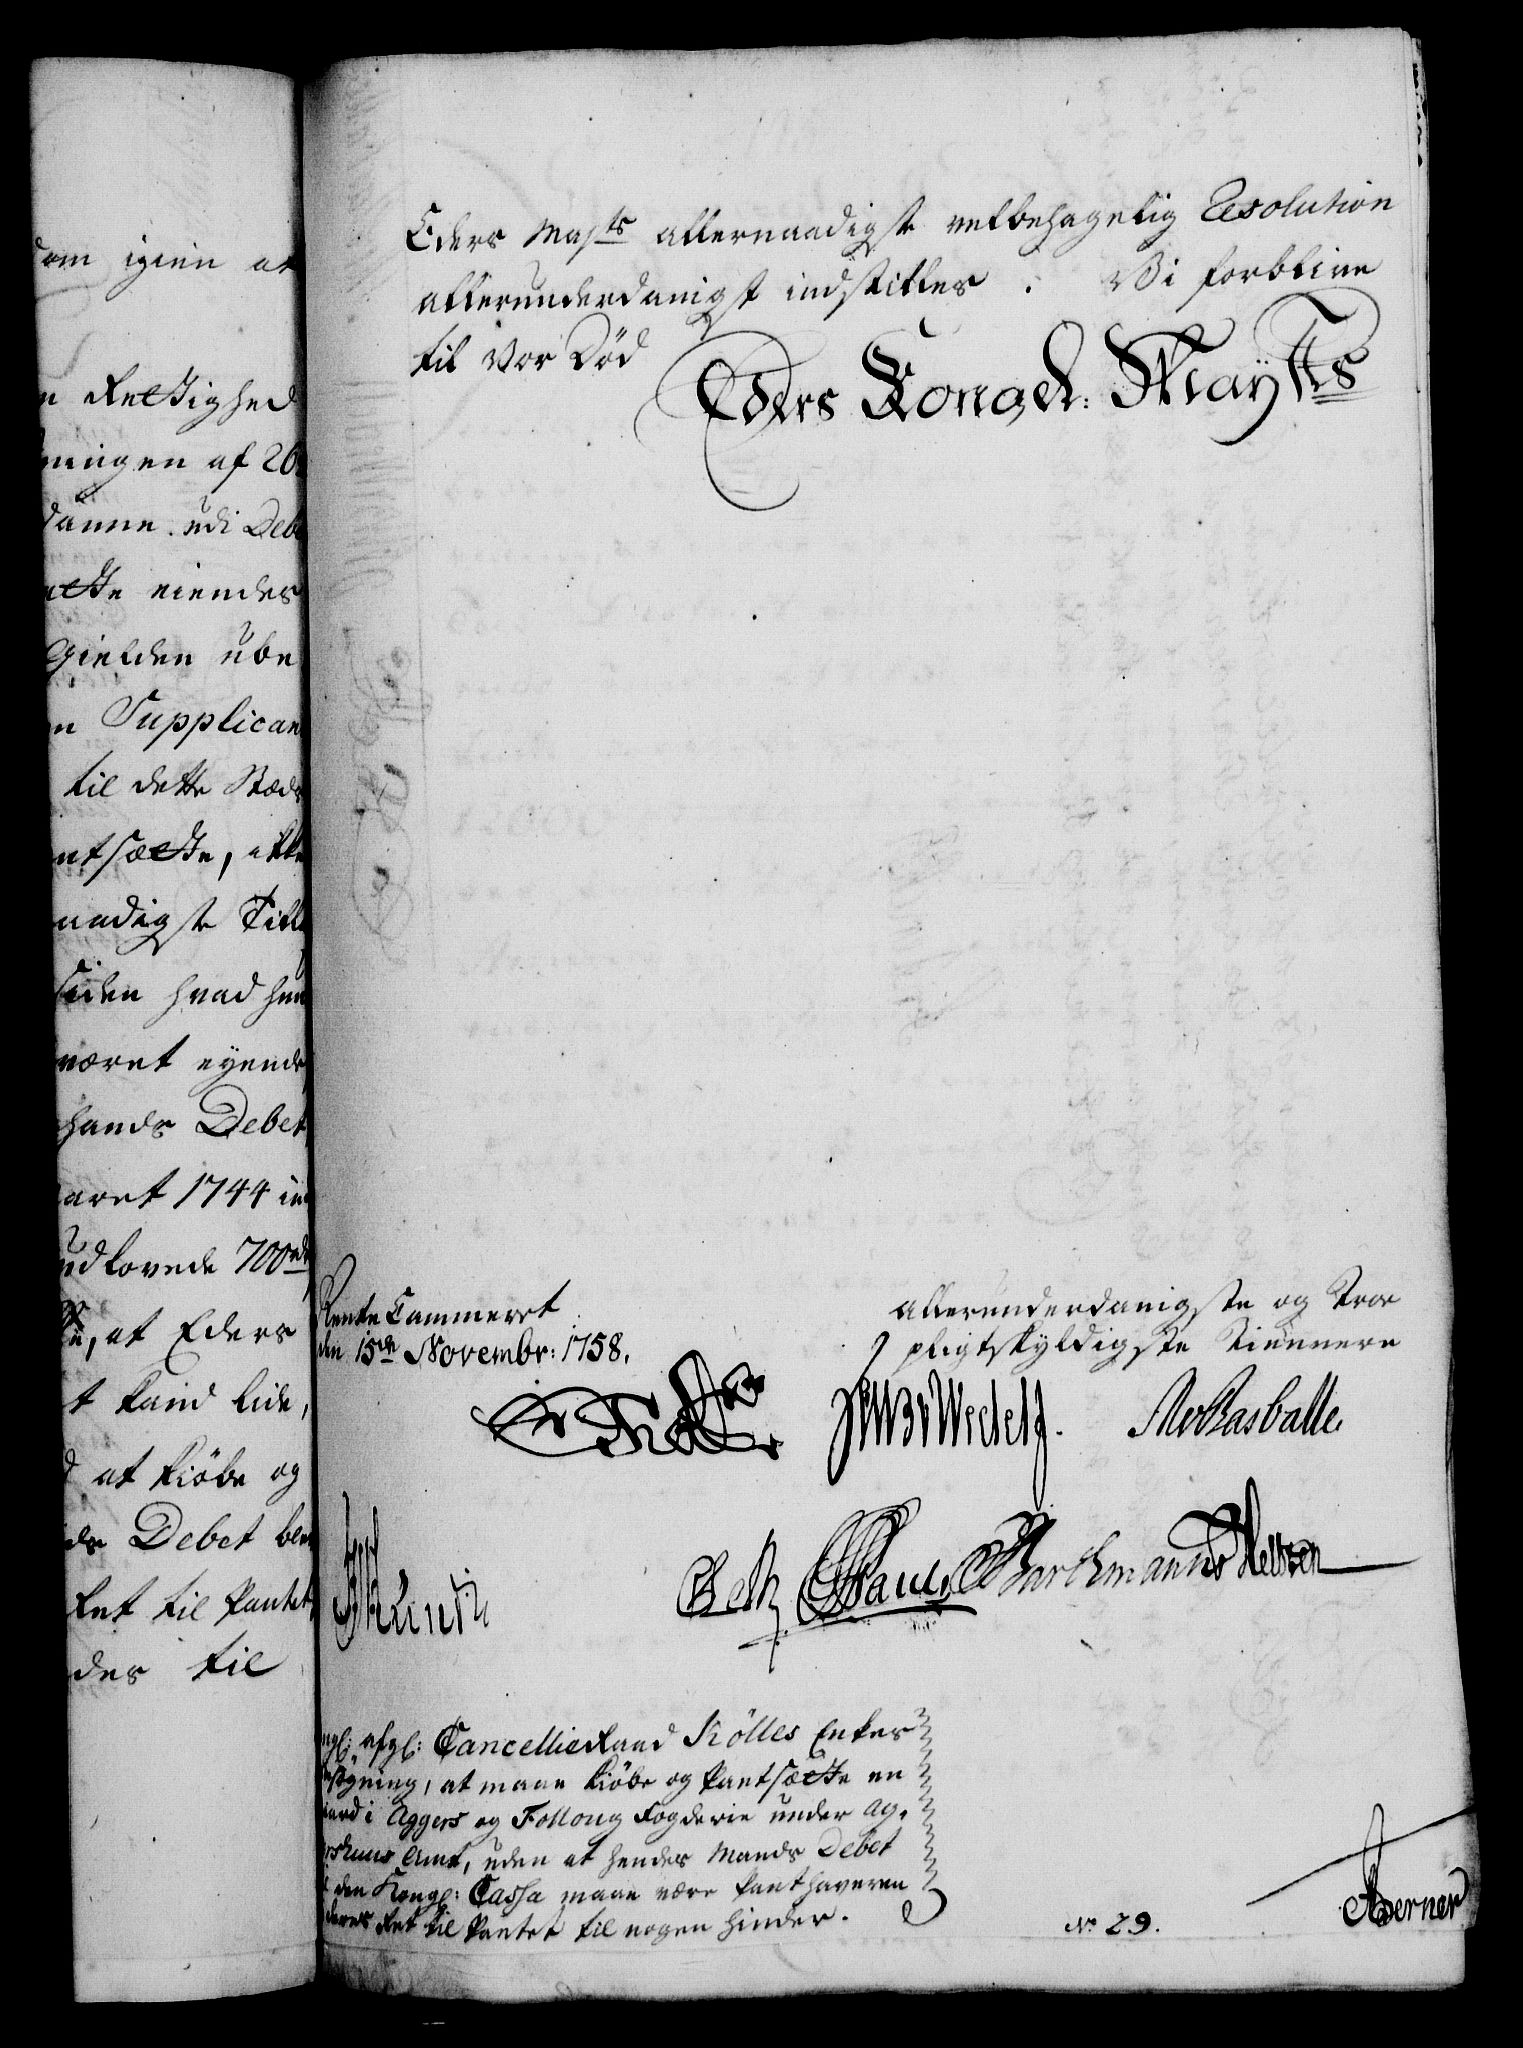 dom igien at
Rettighed
ningen af 26
danne. udi Deb
ette eiendes
Gielden ube
Supplican
til dette Stæds
ntsætte, ikke
naadigste Till
siden hvad hun
været eyende
hands Debet
aaret 1744 in
udlovede 700 rd
at Eders
t kand lide,
at kiöbe og
Debet ble
Ret til Pantet,
des til
Eders Majts allernaadigste velbehagelig Resolution
allerunderdanigst indstilles. Vi forblive
til Vor Död
Eders Kongel: Mayts
Rente Cammeret
den 15de Novembr: 1758.
allerunderdanigste og troe
pligtskyldigste Tiennere
Wedell
Rasballe
Barthmann Nellsen
ngl: afgl: CancellieRaad Kölles Enkes
at maae kiöbe og Pantsætte en
aard i Aggers og Follong Fogderie under Ag,,
ershuus Amt, uden at hendes Mands Debet
den Kongl: Cassa maae være Panthaveren
deres Ret til Pantet til nogen Hinder.
No 29.
Berner